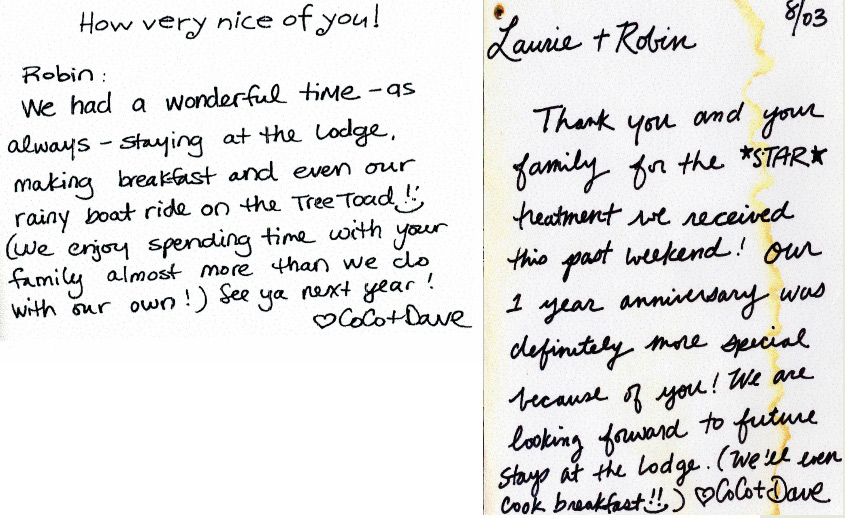 How very nice of you!
Robin:
We had a wonderful time - as
always - staying at the lodge,
making breakfast and even our
rainy boat ride on the Tree Toad!!
(We enjoy spending time with your
family almost more than we do
with our own!) See ya next year!
♡CoCo+Dave
8/03
Laurie + Robin
Thank you and your
family for the *STAR*
treatment we received
this past weekend! Our
1 year anniversary was
definitely more special
because of you! We are
looking forward to future
stays at the lodge. (We'll even
cook breakfast!!) ♡CoCo+Dave